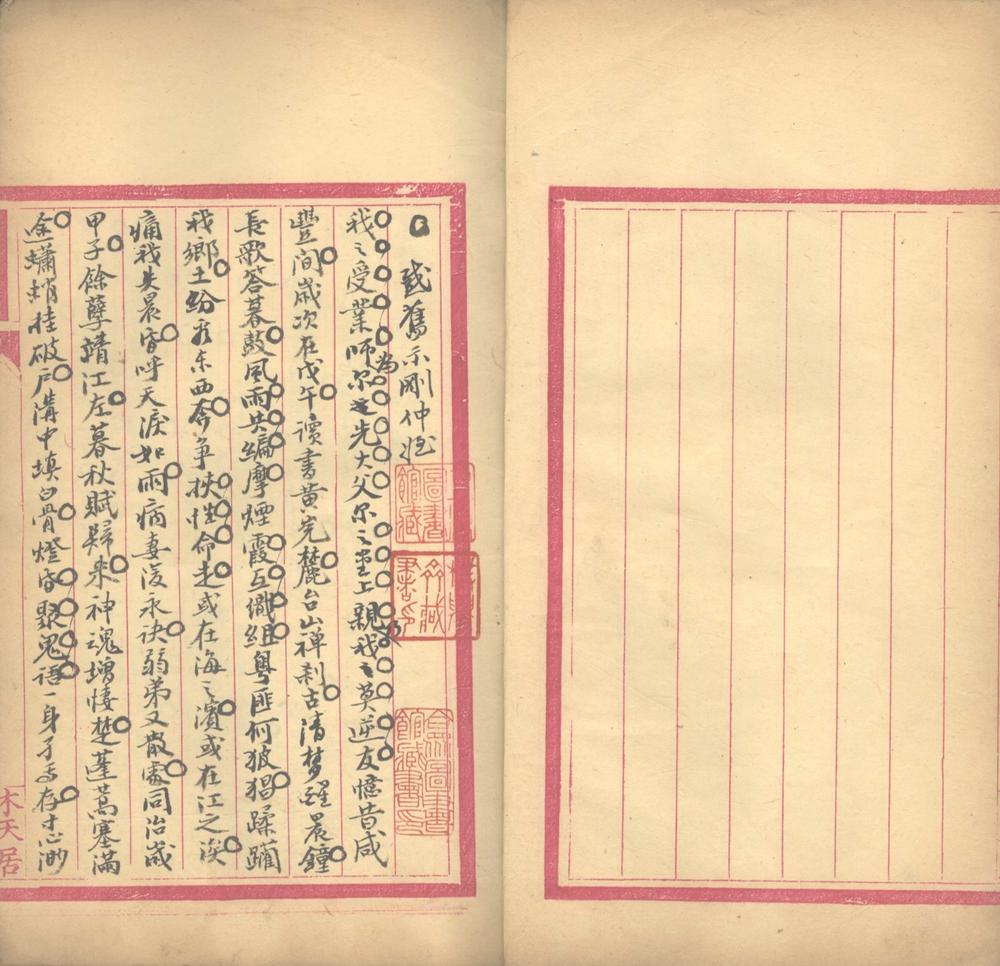 感舊示剛仲姪
我之受業師尔為先大父尔之堂上親我乃莫逆友憶昔咸
豐間歲次在戊午讀書黃堯麓台山禪刹古清梦醒晨鐘
長歌答暮鼓風雨共編摩煙霞互儷組粵匪何披猖蹂躪
我鄉土紛東西奔爭挾性命走或在海之濱或在江之涘
痛我失晨昏呼天淚如雨病妻永訣弱弟又散處同治歲
甲子餘孽靖江左暮秋賦歸来神魂增悽楚蓬蒿塞滿
途蠨蛸挂破戶溝中填白骨燈昏聚鬼語一身孑存寸心渺
合眾圖書館藏書印
木天居